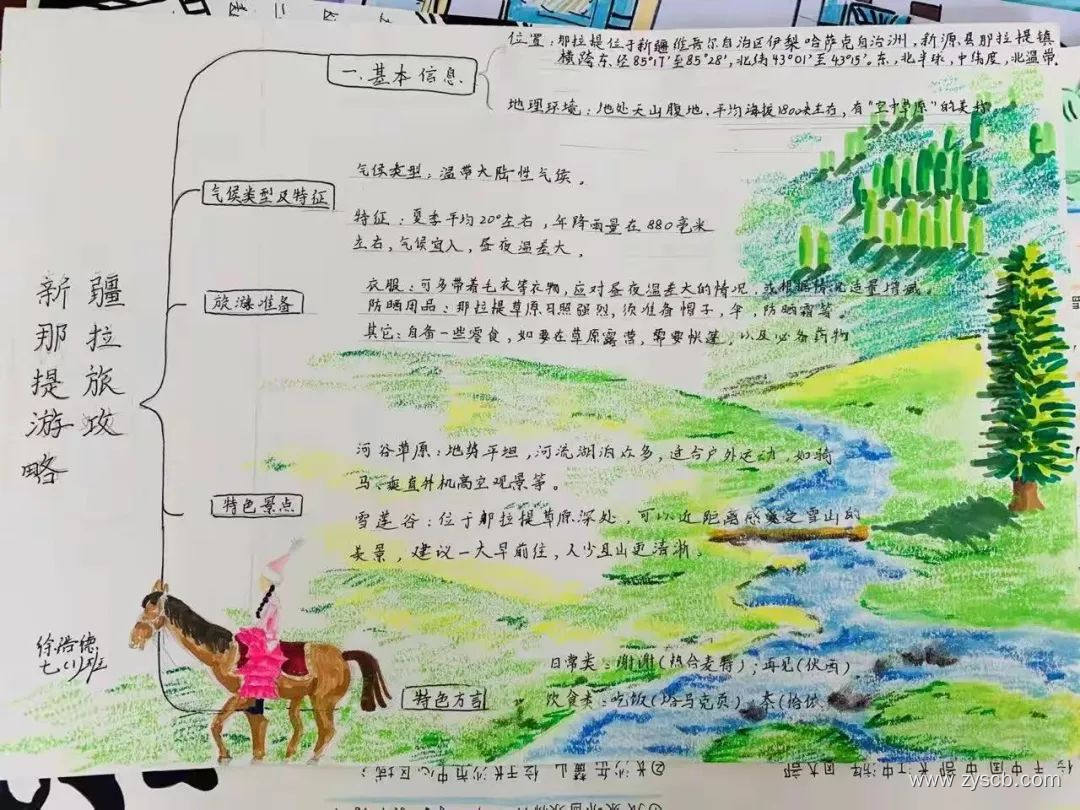 新疆
那拉
提旅
游攻
略
徐浩德
七(1)班
一.基本信息
位置:那拉提位于新疆维吾尔自治区伊犁哈萨克自治洲,新源县那拉提镇
横跨东经85°17′至85°28′,北纬43°01′至43°15′。东,北半球,中纬度,北温带.
地理环境:地处天山腹地.平均海拔1800米左右,有"空中草原"的美称
气候类型及特征
气候类型:温带大陆性气候。
特征:夏季平均20°左右,年降雨量在880毫米
左右,气候宜人,昼夜温差大。
旅游准备
衣服:可多带着毛衣等衣物,应对昼夜温差大的情况,或根据情况适量增减。
防晒用品:那拉提草原日照强烈,须准备帽子,伞,防晒霜等。
其它:自备一些零食,如要在草原露营,需要帐篷,以及必备药物
特色景点
河谷草原:地势平坦,河流湖泊众多,适合户外运动,如骑
马,乘直升机高空观景等。
雪莲谷:位于那拉提草原深处,可以近距离感受雪山的
美景,建议一大早前往,人少且山更清淅。
特色方言
日常类:谢谢(热合麦特);再见(伏西)
饮食类:吃饭(塔马克页) 茶(恰依
②长沙岳麓山 位于长沙市中心区域:
位于中国中部 长江中游
www.zyscb.com